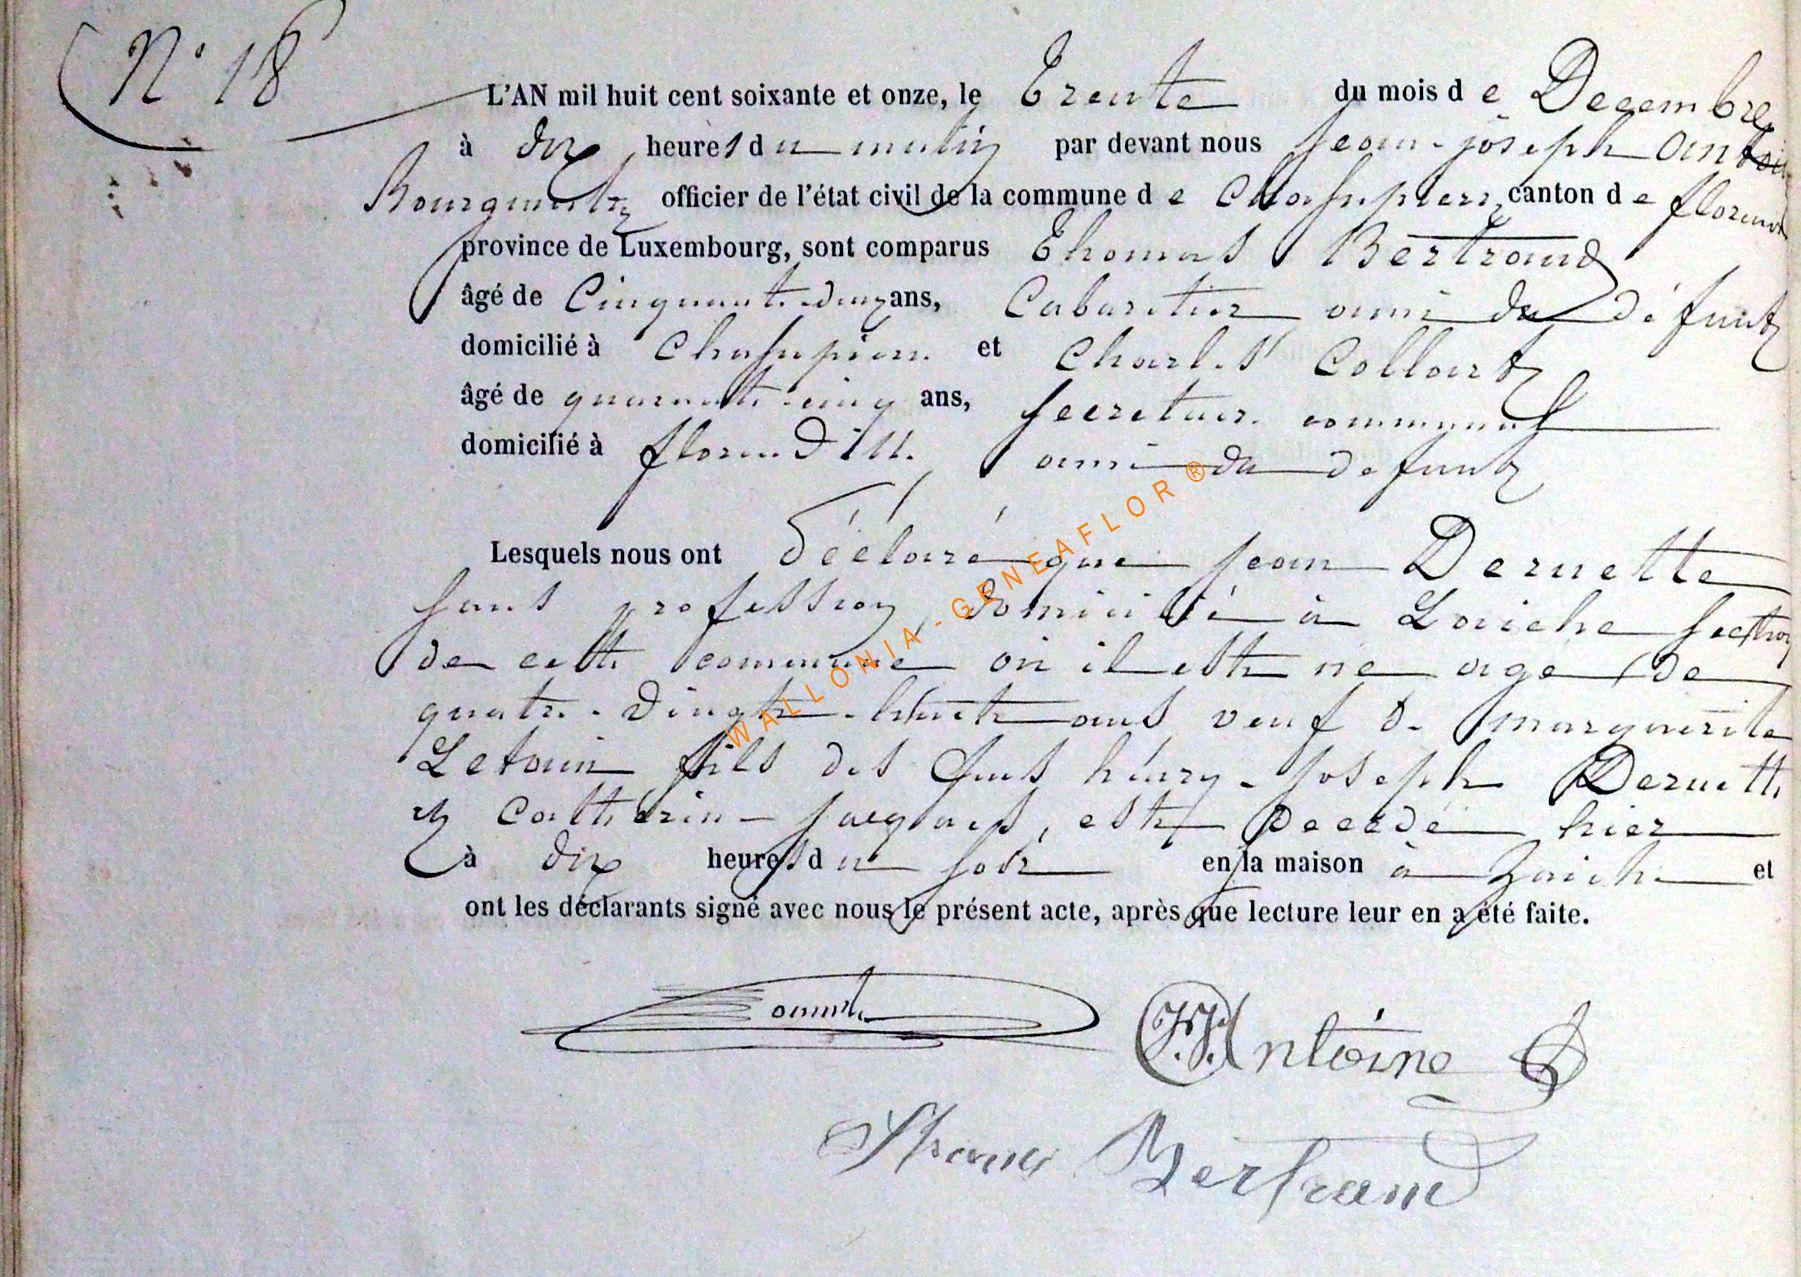 N° 18
L'AN mil huit cent soixante et onze, le Trente du mois de Decembre
à dix heures du matin par devant nous Jean-joseph Antoine
Bourgmestre officier de l'état civil de la commune de Chassepierre canton de florenville
province de Luxembourg, sont comparus Thomas Bertrand
âgé de Cinquante-deux ans, Cabaretier ami du défunt
domicilié à Chassepierre et Charles Collart
âgé de quarante-cinq ans, secretaire communal
domicilié à florenville, ami du defunt
Lesquels nous ont déclaré que jean Deruette
sans profession, domicilié à Laiche section
de cette commune où il est né age de
quatre-vingt-huit ans veuf de marguerite
fils des feus henry-joseph Deruette
et Catherine jacques, est décédé hier
à dix heures du soir en la maison à Laiche et
ont les déclarants signé avec nous le présent acte, après que lecture leur en a été faite.
J.J. Antoine
Thomas Bertrand
WALLONIA-GENEAFLOR ®